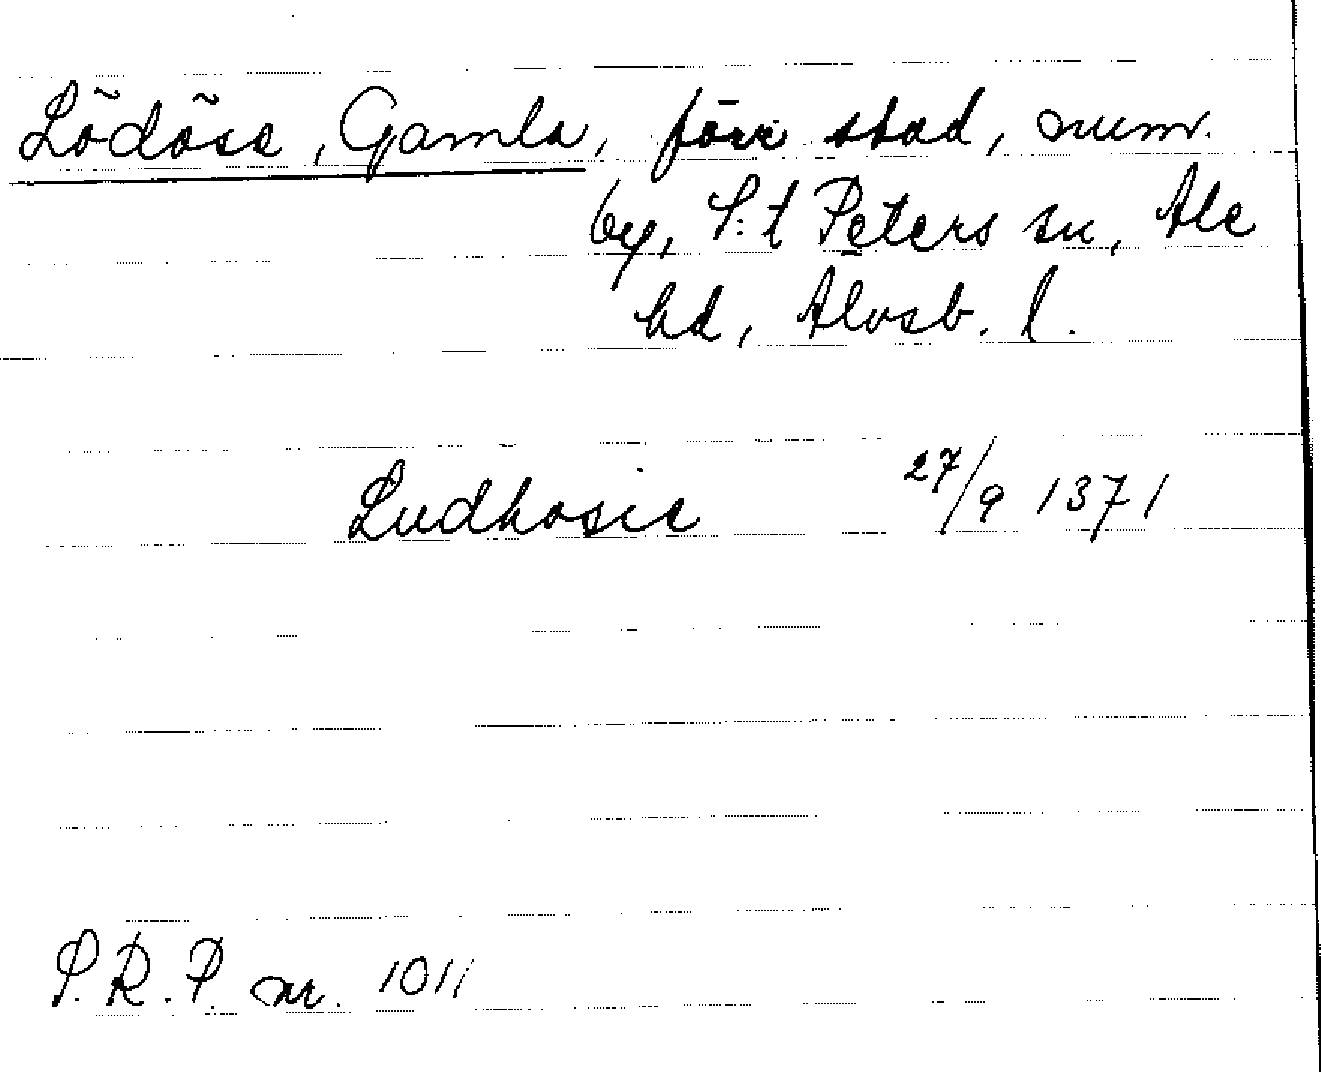 Lödöse, Gamla, förr stad, num.
by, S:t Peters sn, Ale
hd, Älvsb. l.
Ludhosie 27/9 1371
S.R.P. nr. 1011